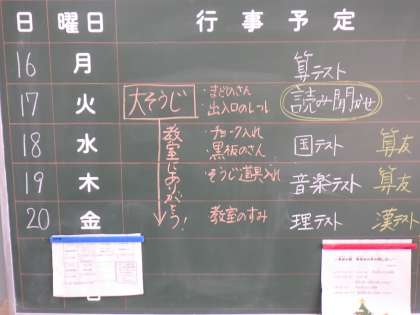 日 曜日 行事予定
16 月 算テスト
17 火 大そうじ ・まどのさん ・出入口のレール 読み聞かせ
18 水 ・チョーク入れ ・黒板のさん 国テスト 算友
19 木 ・そうじ道具入れ 音楽テスト 算友
20 金 ・教室のすみ 理テスト 漢テスト
教室にありがとう!